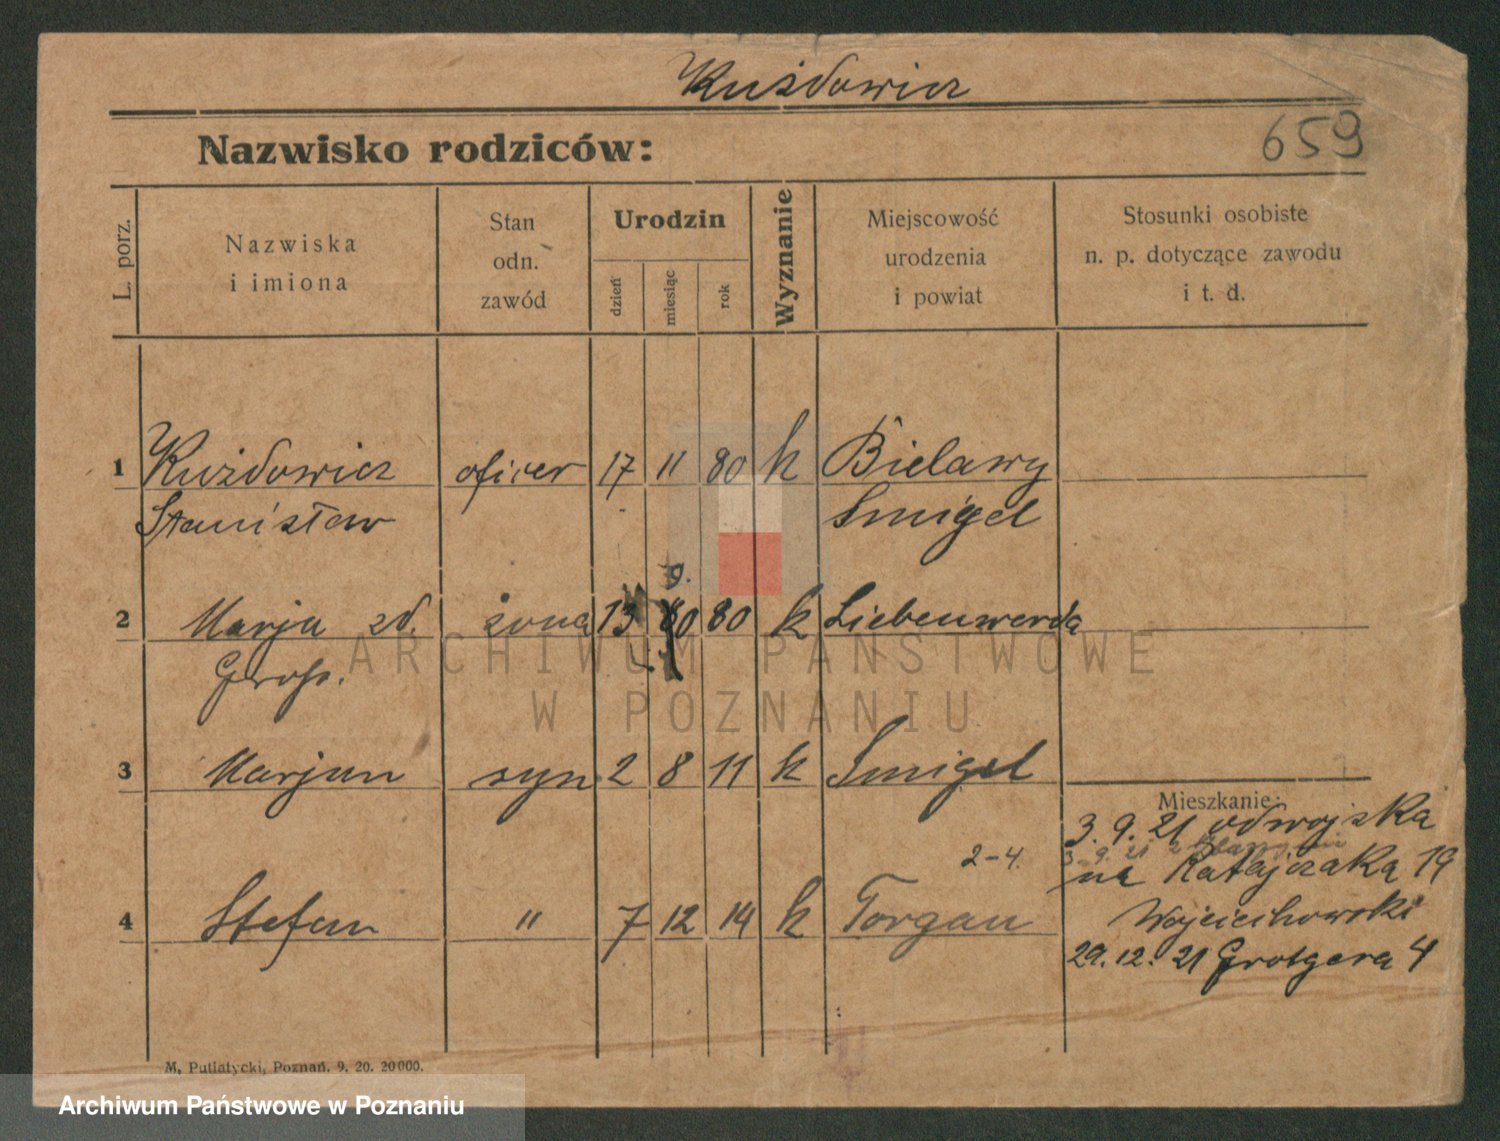 Kużdowicz
Nazwisko rodziców:
659
L. porz.
Nazwiska
i imiona
Stan
odn.
zawód
Urodzin
dzień
miesiąc
rok
Wyznanie
Miejscowość
urodzenia
i powiat
Stosunki osobiste
n. p. dotyczące zawodu
i t. d.
1 Kużdowicz oficer 17 11 80 k Bielawy
Stanisław Smigel
9.
2 Marja zd. żona 13 80 k Liebenwerda
Gross.
3 Marjan syn 2 8 11 k Smigel
Mieszkanie:
3. 9. 21 od wojska
2-4.
3. 9. 21
na Ratajczaka 19
4 Stefan " 7 12 14 k Torgau
Wojciechowski
29. 12. 21 Grotgera 4
M, Putiatycki, Poznań. 9. 20. 20000.
ARCHIWUM PAŃSTWOWE
W POZNANIU
Archiwum Państwowe w Poznaniu